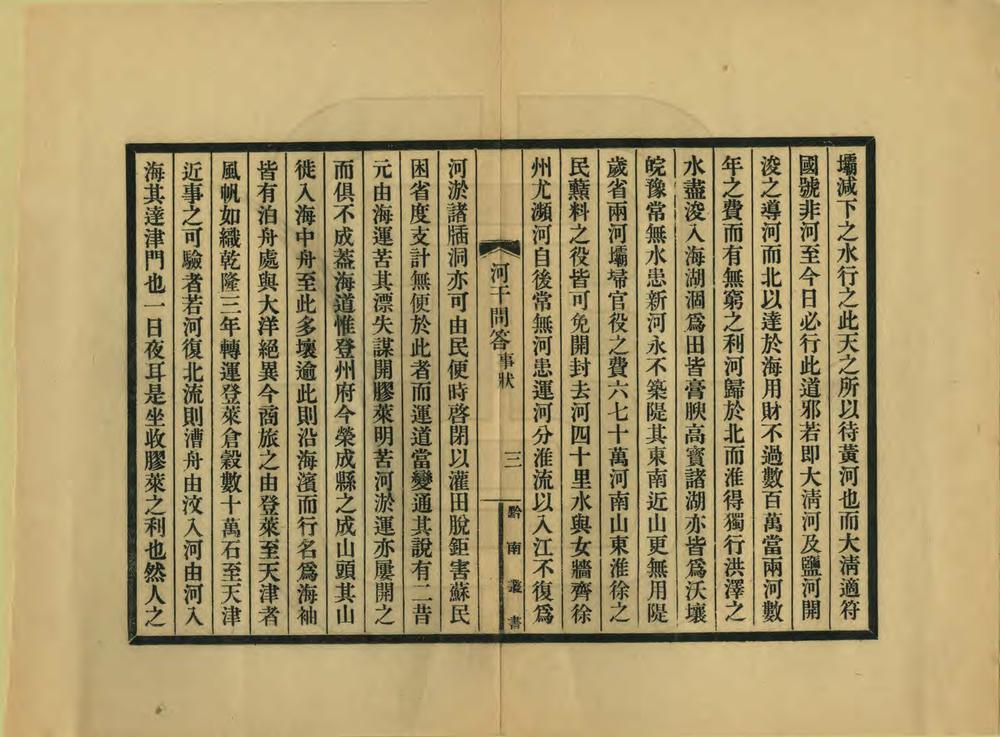 壩減下之水行之此天之所以待黃河也而大淸適符
國號非河至今日必行此道邪若即大淸河及鹽河開
浚之導河而北以達於海用財不過數百萬當兩河數
年之費而有無窮之利河歸於北而淮得獨行洪澤之
水盡浚入海湖涸爲田皆膏腴高寶諸湖亦皆爲沃壤
皖豫常無水患新河永不築隄其東南近山更無用隄
歲省兩河壩埽官役之費六七十萬河南山東淮徐之
民蕪料之役皆可免開封去河四十里水與女牆齊徐
州尤瀕河自後常無河患運河分淮流以入江不復爲
河干問答 事狀 三 黔南叢書
河淤諸牐洞亦可由民便時啓閉以灌田脫鉅害蘇民
困省度支計無便於此者而運道當變通其說有二昔
元由海運苦其漂失謀開膠萊明苦河淤運亦屢開之
而俱不成葢海道惟登州府今榮成縣之成山頭其山
徙入海中舟至此多壞逾此則沿海濱而行名爲海袖
皆有泊舟處與大洋絕異今商旅之由登萊至天津者
風帆如織乾隆三年轉運登萊倉穀數十萬石至天津
近事之可驗者若河復北流則漕舟由汶入河由河入
海其達津門也一日夜耳是坐收膠萊之利也然人之